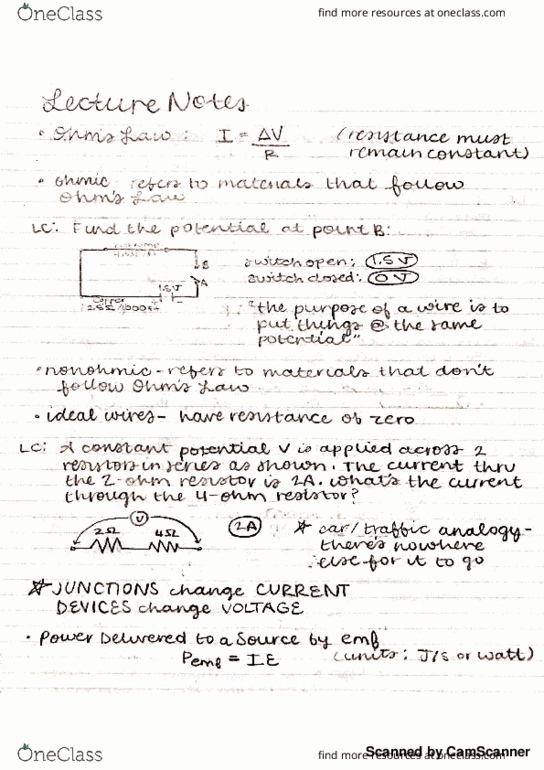 OneClass
find more resources at oneclass.com
Lecture Notes
• Ohm's Law: I = ΔV / R (resistance must
remain constant)
• ohmic - refers to materials that follow
Ohm's Law
LC: Find the potential at point B:
switch open: 1.5V
switch closed: 0V
B
A
1.5V
"the purpose of a wire is to
put things @ the same
potential"
• nonohmic - refers to materials that don't
follow Ohm's Law
• ideal wires - have resistance of zero
LC: A constant potential V is applied across 2
resistors in series as shown. The current thru
the 2-ohm resistor is 2A. What's the current
through the 4-ohm resistor?
V
2Ω 4Ω
2A
* car/traffic analogy -
there's nowhere
else for it to go
* JUNCTIONS change CURRENT
DEVICES change VOLTAGE
• Power Delivered to a Source by emf
Pemf = Iℰ (units: J/s or watt)
OneClass
find more resources at oneclass.com
Scanned by CamScanner